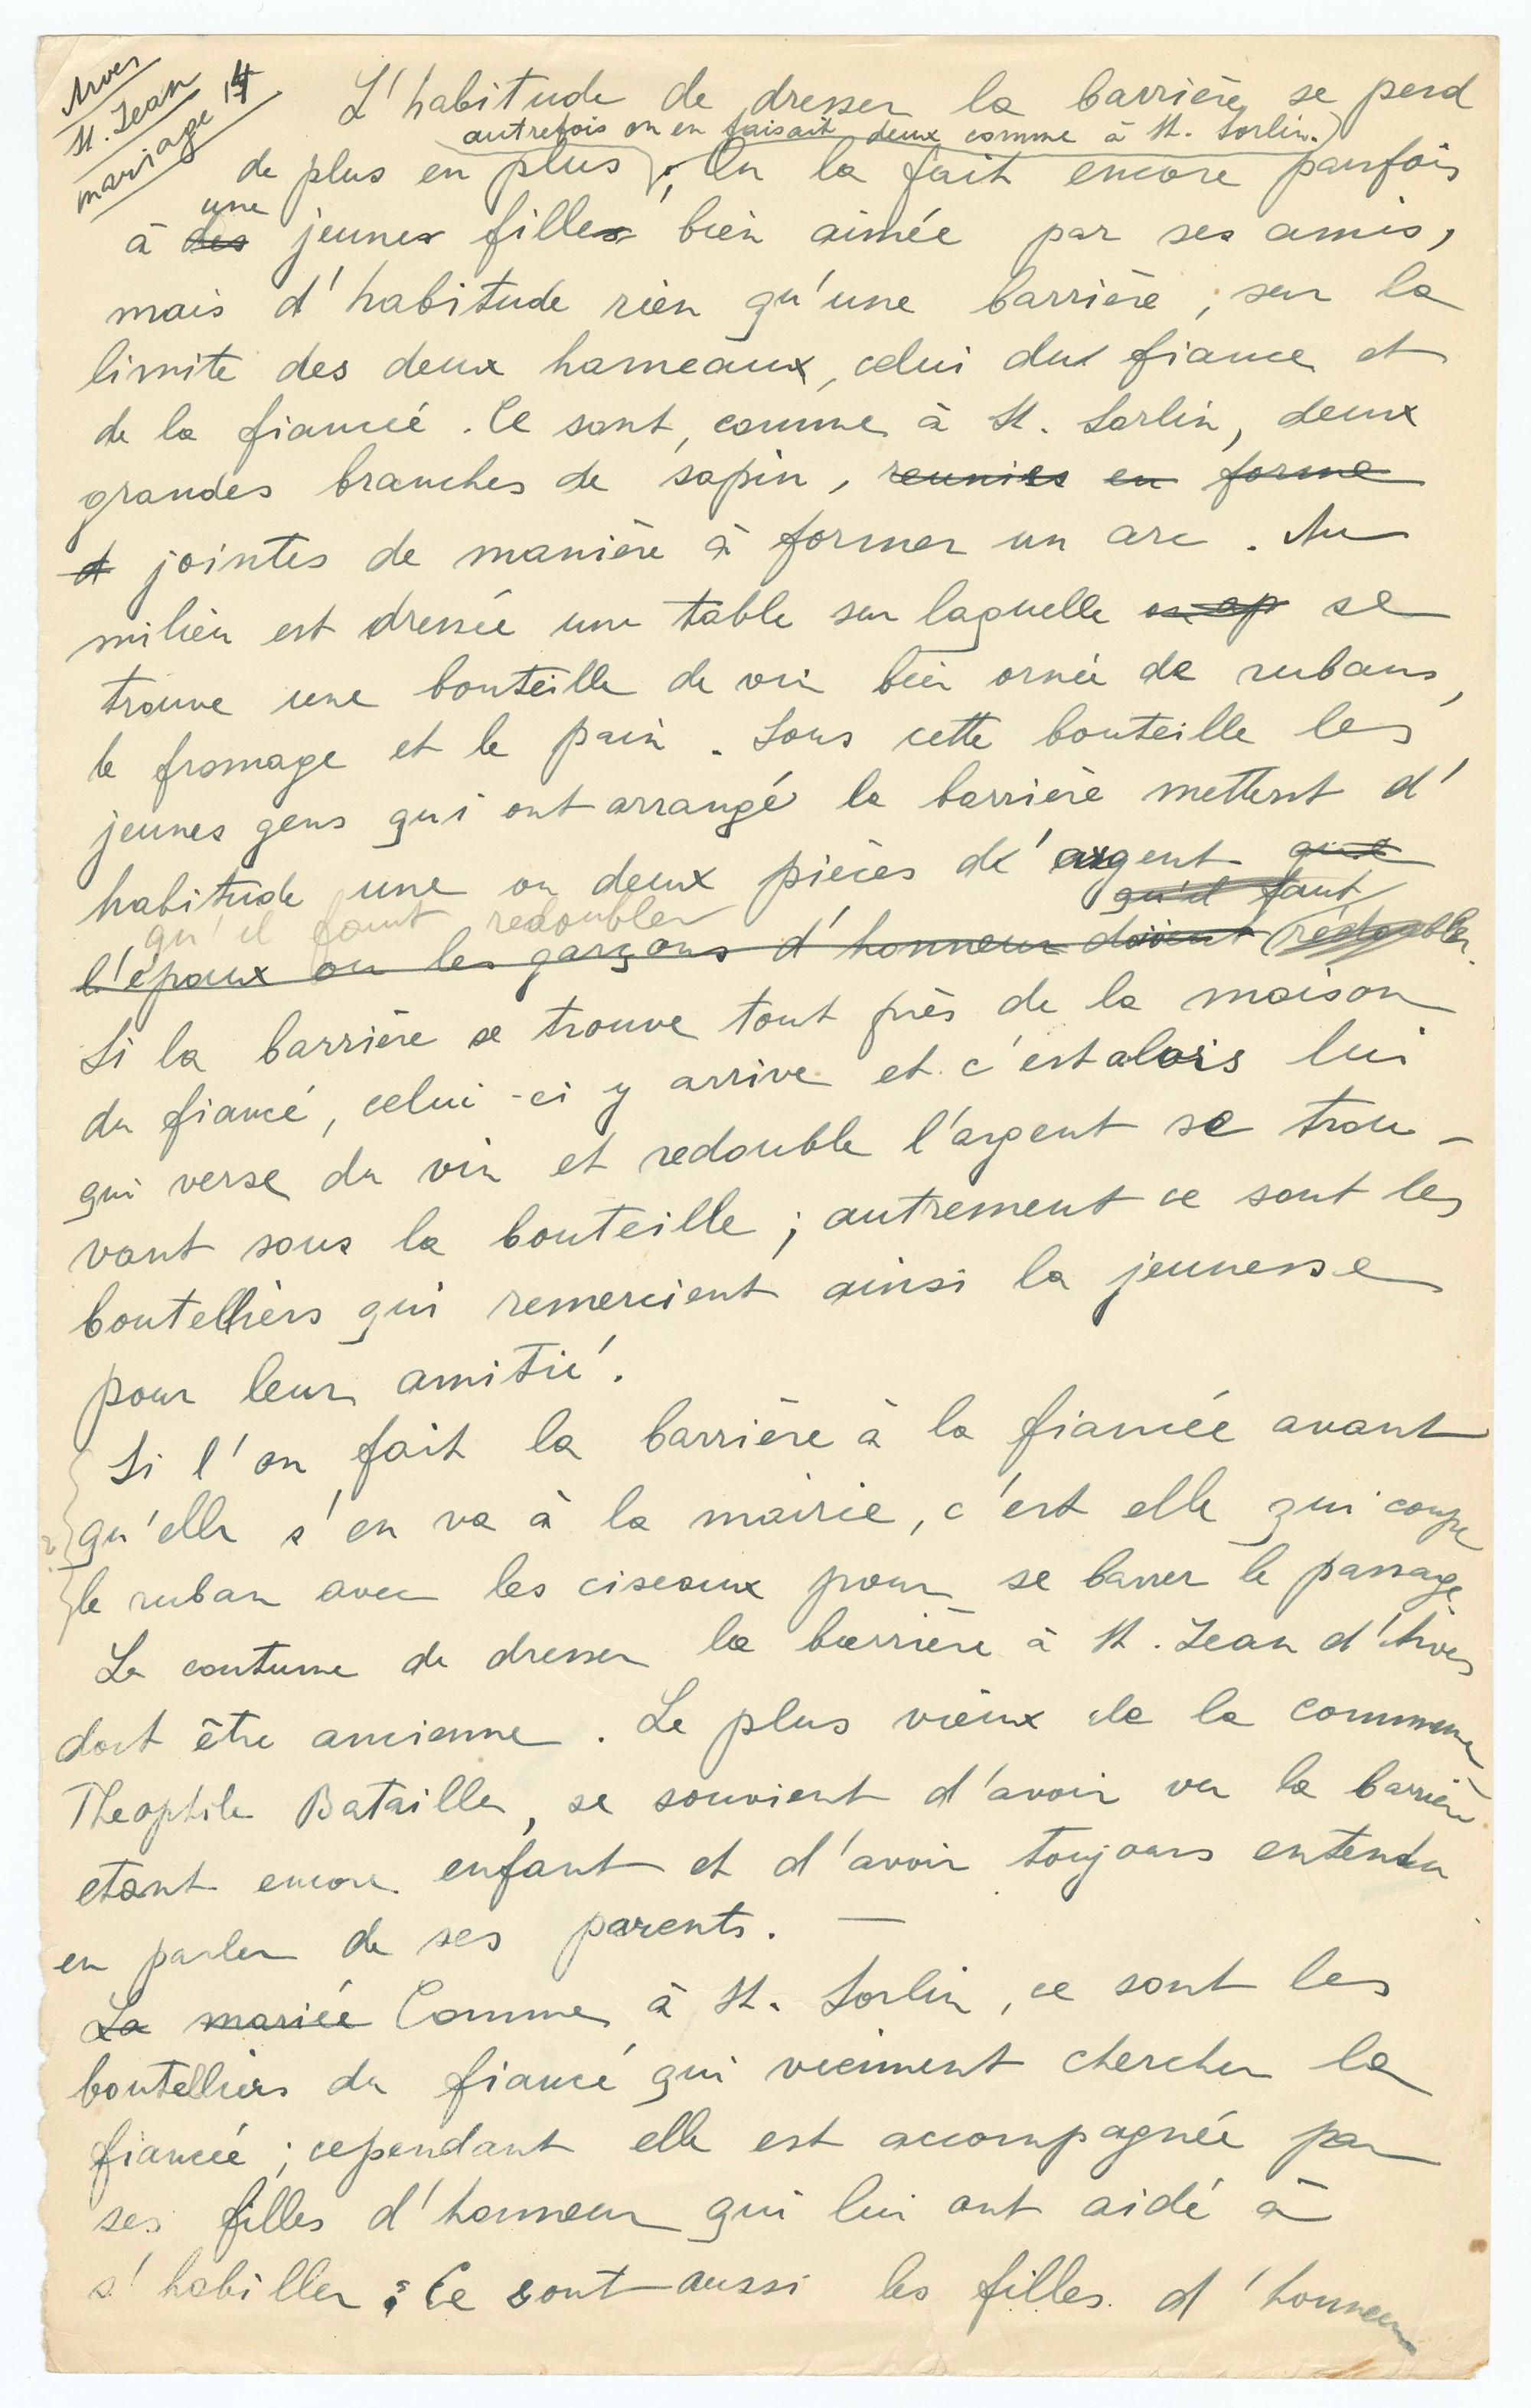 Arves
St. Jean
mariage 14
L'habitude de dresser la barrière se perd
autrefois on en faisait deux comme à St. Sorlin.)
de plus en plus ; On la fait encore parfois
une
à des jeunes filles bien aimée par ses amis,
mais d'habitude rien qu'une barrière, sur la
limite des deux hameaux, celui du fiance et
de la fiancé. Ce sont, comme à St. Sorlin, deux
grandes branches de sapin, reunies en forme
d jointes de manière à former un arc. Au
milieu est dressée une table sur laquelle se
trouve une bouteille de vin bien ornée de rubans,
le fromage et le pain. Sous cette bouteille les
jeunes gens qui ont arrangé la barrière mettent d'
habitude une ou deux pièces d'argent que
qu'il faut
qu'il faut redoubler
l'époux ou les garçons d'honneur doivent redoubler.
Si la barrière se trouve tout près de la maison
du fiancé, celui-ci y arrive et c'est alors lui
qui verse du vin et redouble l'argent se trou-
vant sous la bouteille ; autrement ce sont les
boutelliers qui remercient ainsi la jeunesse
pour leur amitié.
Si l'on fait la barrière à la fiancée avant
qu'elle s'en va à la mairie, c'est elle qui coupe
le ruban avec les ciseaux pour se barrer le passage.
La coutume de dresser la barrière à St. Jean d'Arves
doit être ancienne. Le plus vieux de la commune
Theophile Batailler, se souvient d'avoir vu la barrière
etant encore enfant et d'avoir toujours entendu
en parler de ses parents. —
La mariée Comme à St. Sorlin, ce sont les
boutelliers du fiancé qui viennent chercher la
fiancée ; cependant elle est accompagnée par
ses filles d'honneur qui lui ont aidé à
s'habiller. Ce sont aussi les filles d'honneur